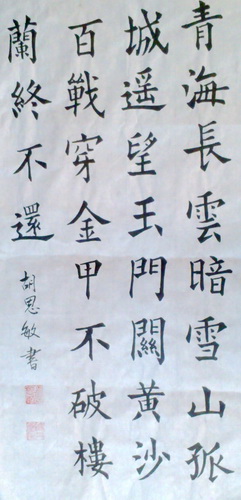 青海長雲暗雪山孤
城遥望玉門關黃沙
百戰穿金甲不破樓
蘭終不還
胡思敏書